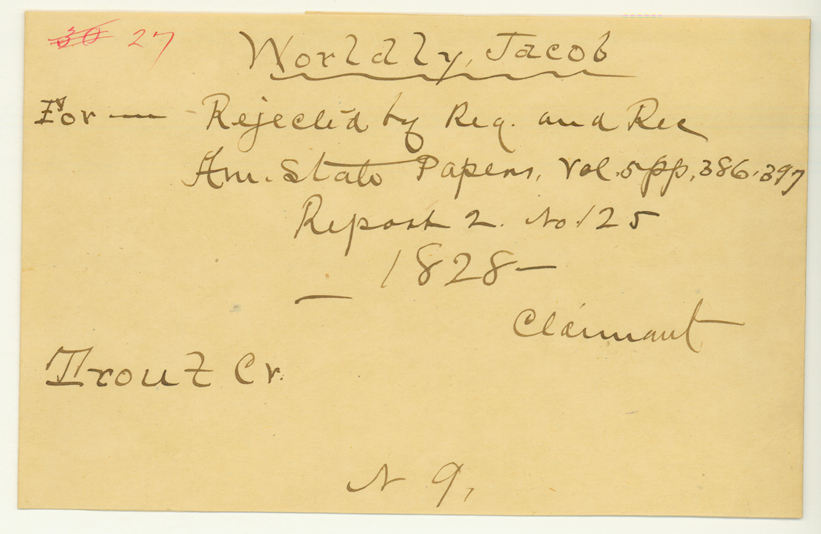 30 27
Worldly, Jacob
For — Rejected by Reg. and Rec
Am. State Papers, Vol. 5 pp, 386-397
Report 2. No. 125
— 1828 —
Claimant
Trout Cr.
N 9,